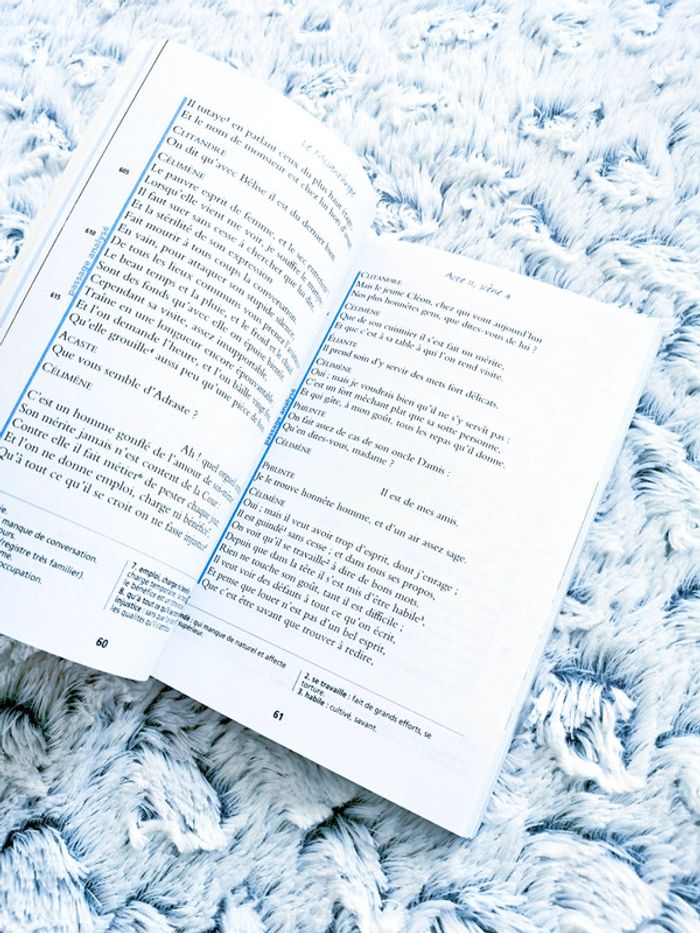 Le Misanthrope
Il tutaye¹ en parlant ceux du plus haut étage,
Et le nom de monsieur est chez lui hors d'
CLITANDRE
On dit qu'avec Bélise il est du dernier bien.
CÉLIMÈNE
605
Le pauvre esprit de femme, et le sec entretien!
Lorsqu'elle vient me voir, je souffre le martyre,
Il faut suer sans cesse à chercher que lui dire,
Et la stérilité de son expression
Fait mourir à tous coups la conversation.
610
En vain, pour attaquer son stupide silence,
De tous les lieux communs vous prenez l'
Le beau temps et la pluie, et le froid et le chaud
Sont des fonds qu'avec elle on épuise bientôt.
Cependant sa visite, assez insupportable,
615
Traîne en une longueur encore épouvantable,
Et l'on demande l'heure, et l'on bâille vingt fois,
Qu'elle grouille⁴ aussi peu qu'une pièce de bois.
ACASTE
Que vous semble d'Adraste ?
CÉLIMÈNE
Ah ! quel orgueil
C'est un homme gonflé de l'amour de soi-même.
Son mérite jamais n'est content de la Cour,
Contre elle il fait métier⁶ de pester chaque jour,
Et l'on ne donne emploi, charge ni bénéfice⁷,
Qu'à tout ce qu'il se croit on ne fasse injustice⁸.
passage analysé
manque de conversation.
(registre très familier).
occupation.
7. emploi, charge
charge temporaire
le bénéfice
8. qu'à tout ce qu'il
injustice : sans
les qualités qu'il
60
Acte II, scène 4
CLITANDRE
Mais le jeune Cléon, chez qui vont aujourd'hui
Nos plus honnêtes gens, que dites-vous de lui ?
CÉLIMÈNE
Que de son cuisinier il s'est fait un mérite,
Et que c'est à sa table à qui l'on rend visite.
ÉLIANTE
Il prend soin d'y servir des mets fort délicats.
CÉLIMÈNE
Oui ; mais je voudrais bien qu'il ne s'y servît pas :
C'est un fort méchant plat que sa sotte personne,
Et qui gâte, à mon goût, tous les repas qu'il donne.
PHILINTE
On fait assez de cas de son oncle Damis :
Qu'en dites-vous, madame ?
CÉLIMÈNE
Il est de mes amis.
PHILINTE
Je le trouve honnête homme, et d'un air assez sage.
CÉLIMÈNE
Oui ; mais il veut avoir trop d'esprit, dont j'enrage ;
Il est guindé¹ sans cesse ; et dans tous ses propos,
On voit qu'il se travaille² à dire de bons mots.
Depuis que dans la tête il s'est mis d'être habile³,
Rien ne touche son goût, tant il est difficile ;
Il veut voir des défauts à tout ce qu'on écrit,
Et pense que louer n'est pas d'un bel esprit,
Que c'est être savant que trouver à redire,
passage analysé
: qui manque de naturel et affecte
supérieur.
2. se travaille : fait de grands efforts, se
torture.
3. habile : cultivé, savant.
61